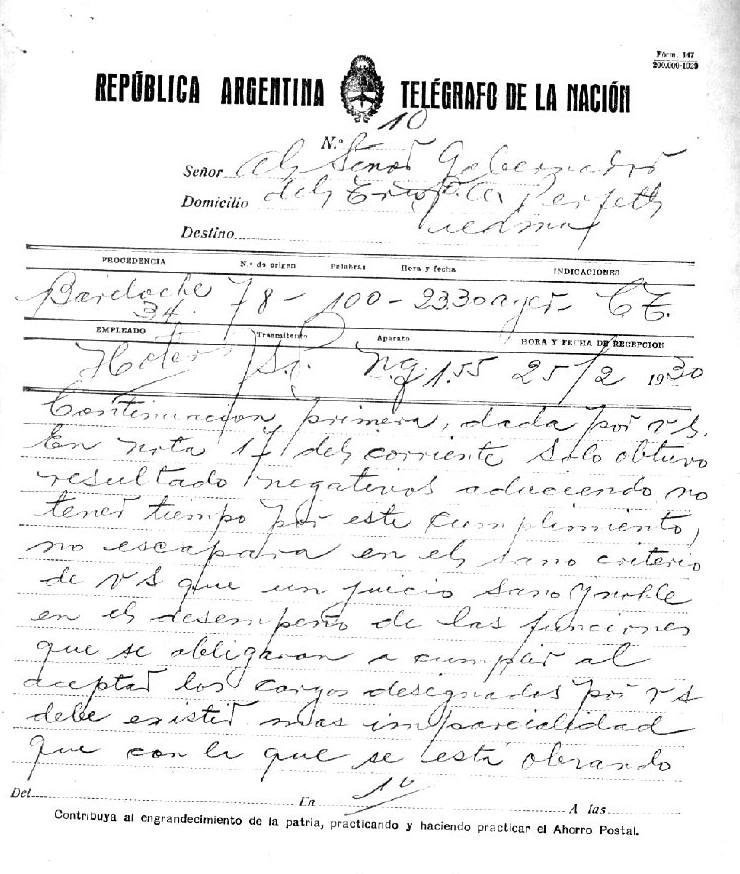 Fórm. 147
200.000-1929
REPÚBLICA ARGENTINA TELÉGRAFO DE LA NACIÓN
N.º 10
Señor Al Señor Gobernador
Domicilio del
Destino Viedma
PROCEDENCIA N.º de origen Palabras Hora y fecha INDICACIONES
Bariloche 78- 100- 23.30 ayer-
34.
EMPLEADO Transmitente Aparato HORA Y FECHA DE RECEPCION
1.55 25/2 1930
Continuacion primera, dada por v s.
En nota 17 del corriente solo obtuvo
resultado negativos aduciendo no
tener tiempo por este cumplimiento,
no escapara en el sano criterio
de v s que un juicio sano y noble
en el desempeño de las funciones
que se obligaron a cumplir al
aceptar los cargos designados por v s
debe existir mas imparcialidad
que con la que se esta obrando
Del En A las
Contribuya al engrandecimiento de la patria, practicando y haciendo practicar el Ahorro Postal.